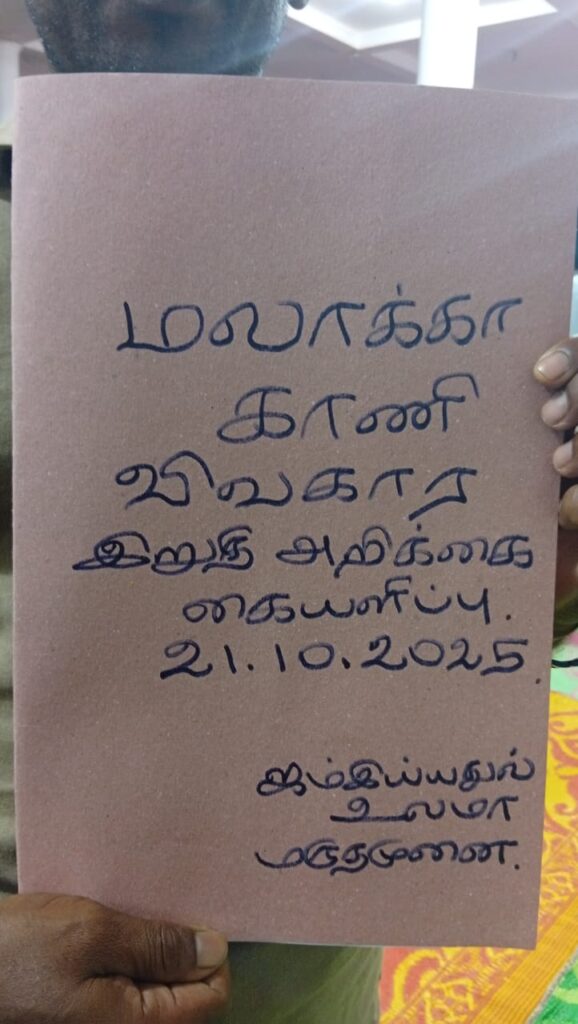 மலாக்கா
காணி
விவகார
இறுதி அறிக்கை
கையளிப்பு.
21.10.2025.
ஜம்இய்யதுல்
உலமா
மருதமுனை.